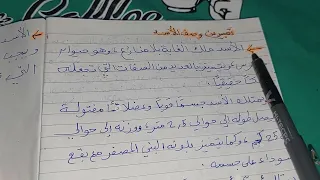 Coffee
تعبير عن وصف الأسد
الأسد ملك الغابة بلا منازع وهو حيوان
يتميز بالعديد من الصفات التي تجعله
يمتلك الأسد جسمًا قويًا وعضلات مفتولة
يصل طوله إلى حوالي 2,5 متر ووزنه إلى حوالي
25 كجم، وكما يتميز بلونه البني المصفر مع بقع
سوداء على جسمه
الأسد
ويجب
التي